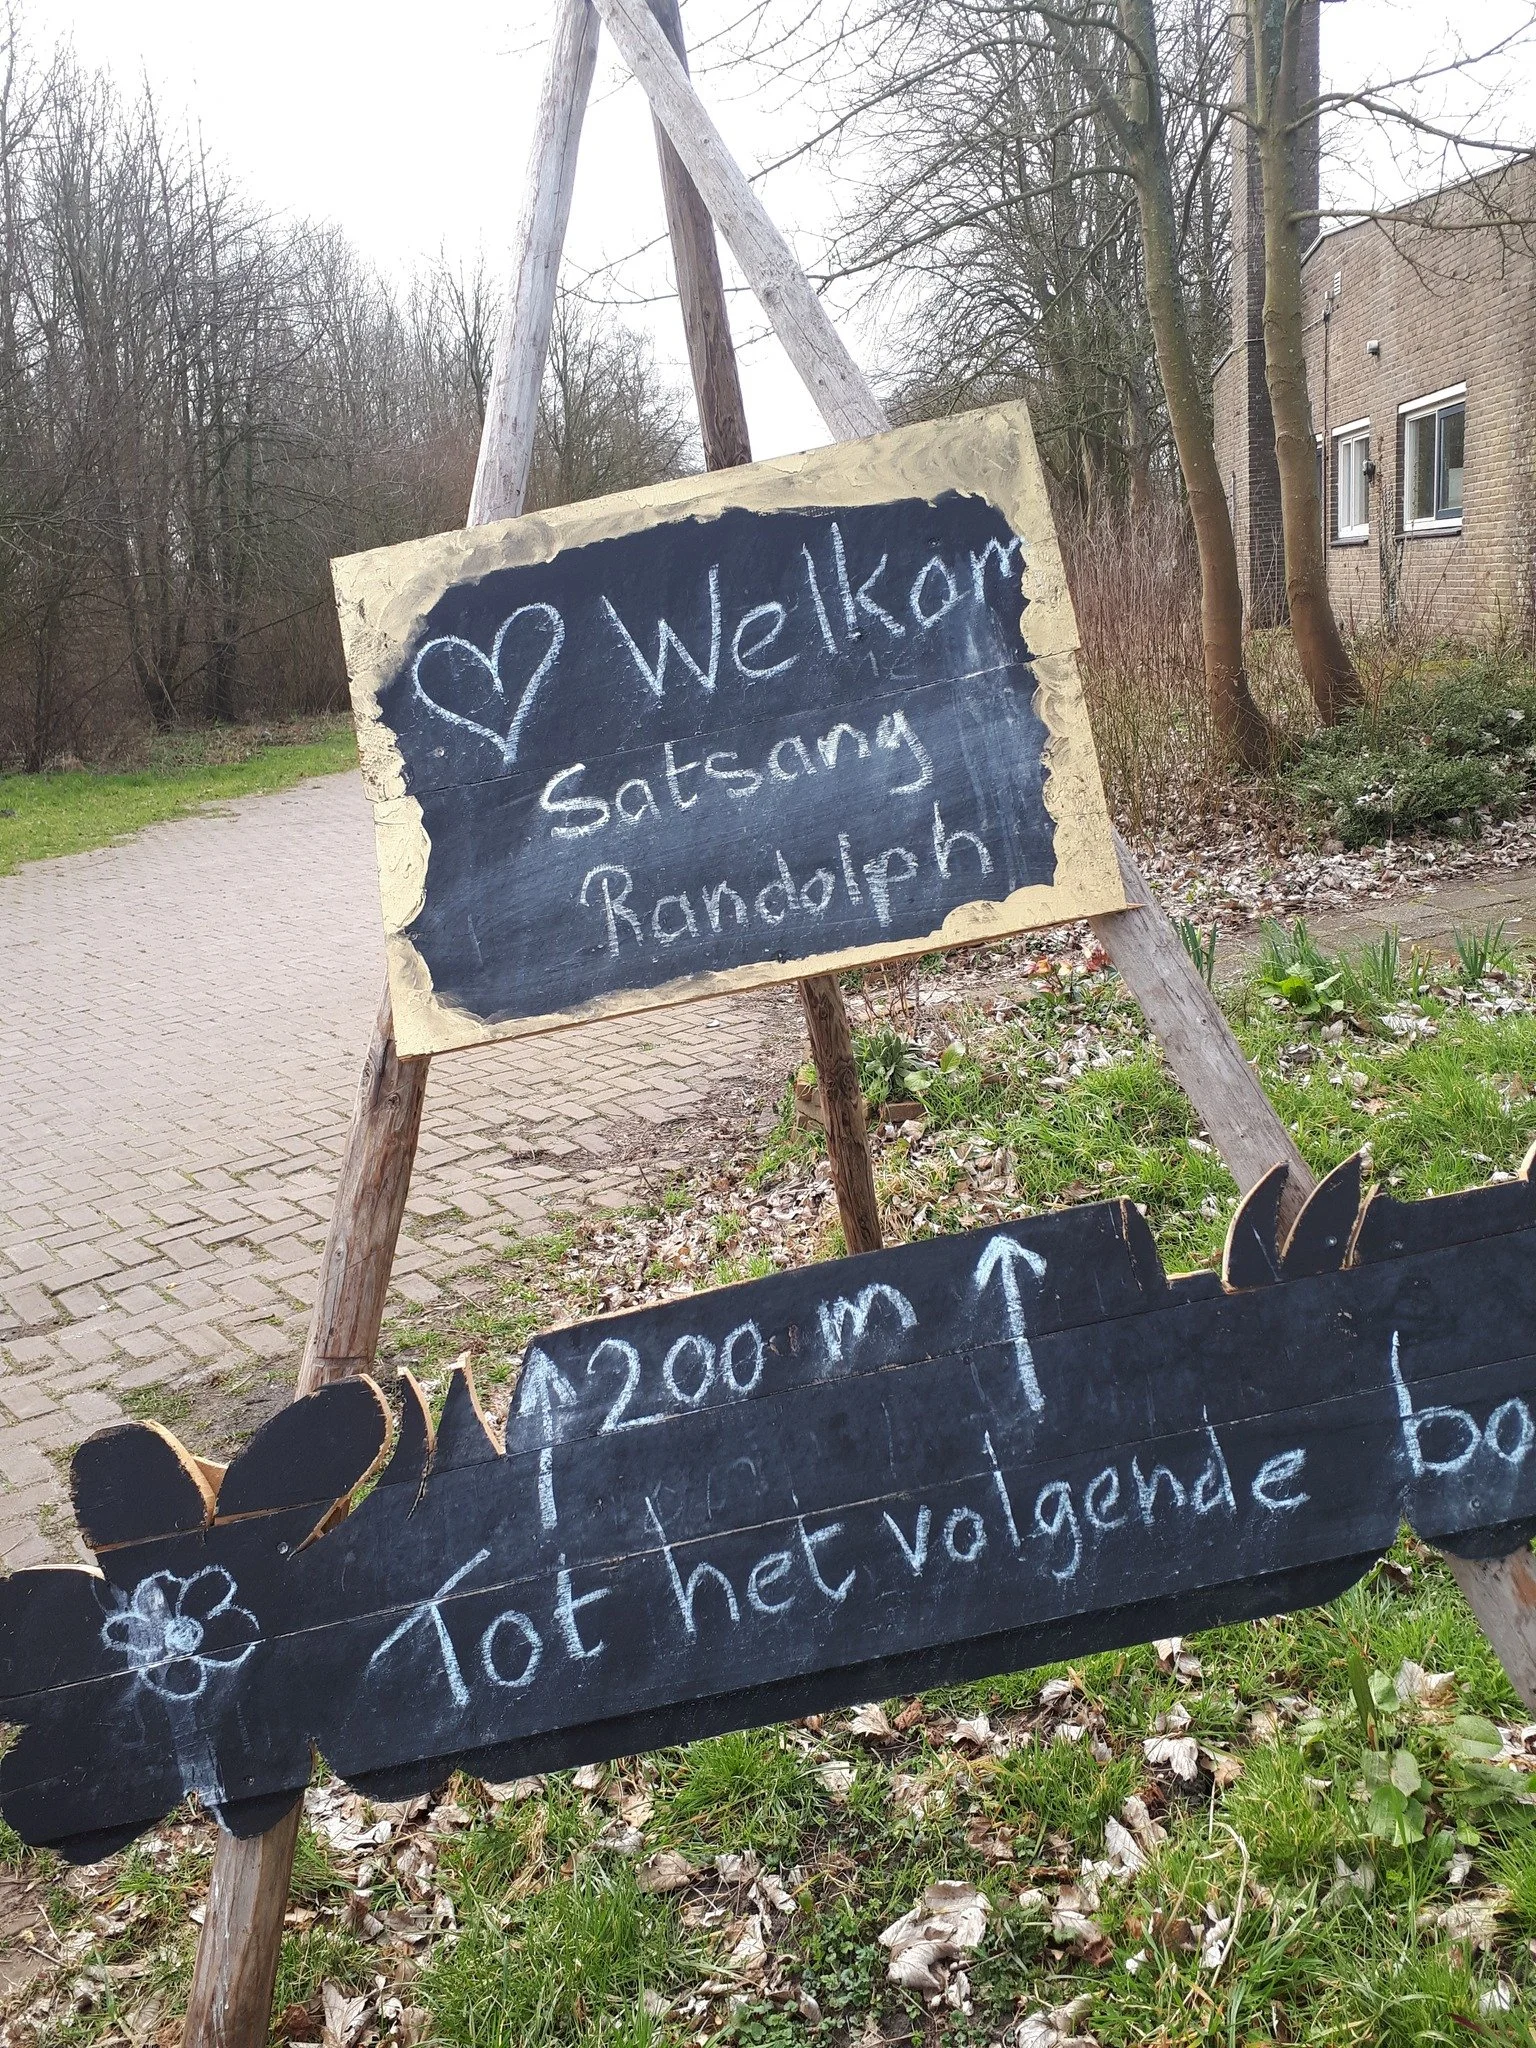 Welkom
Satsang
Randolph
200 m
Tot het volgende bo